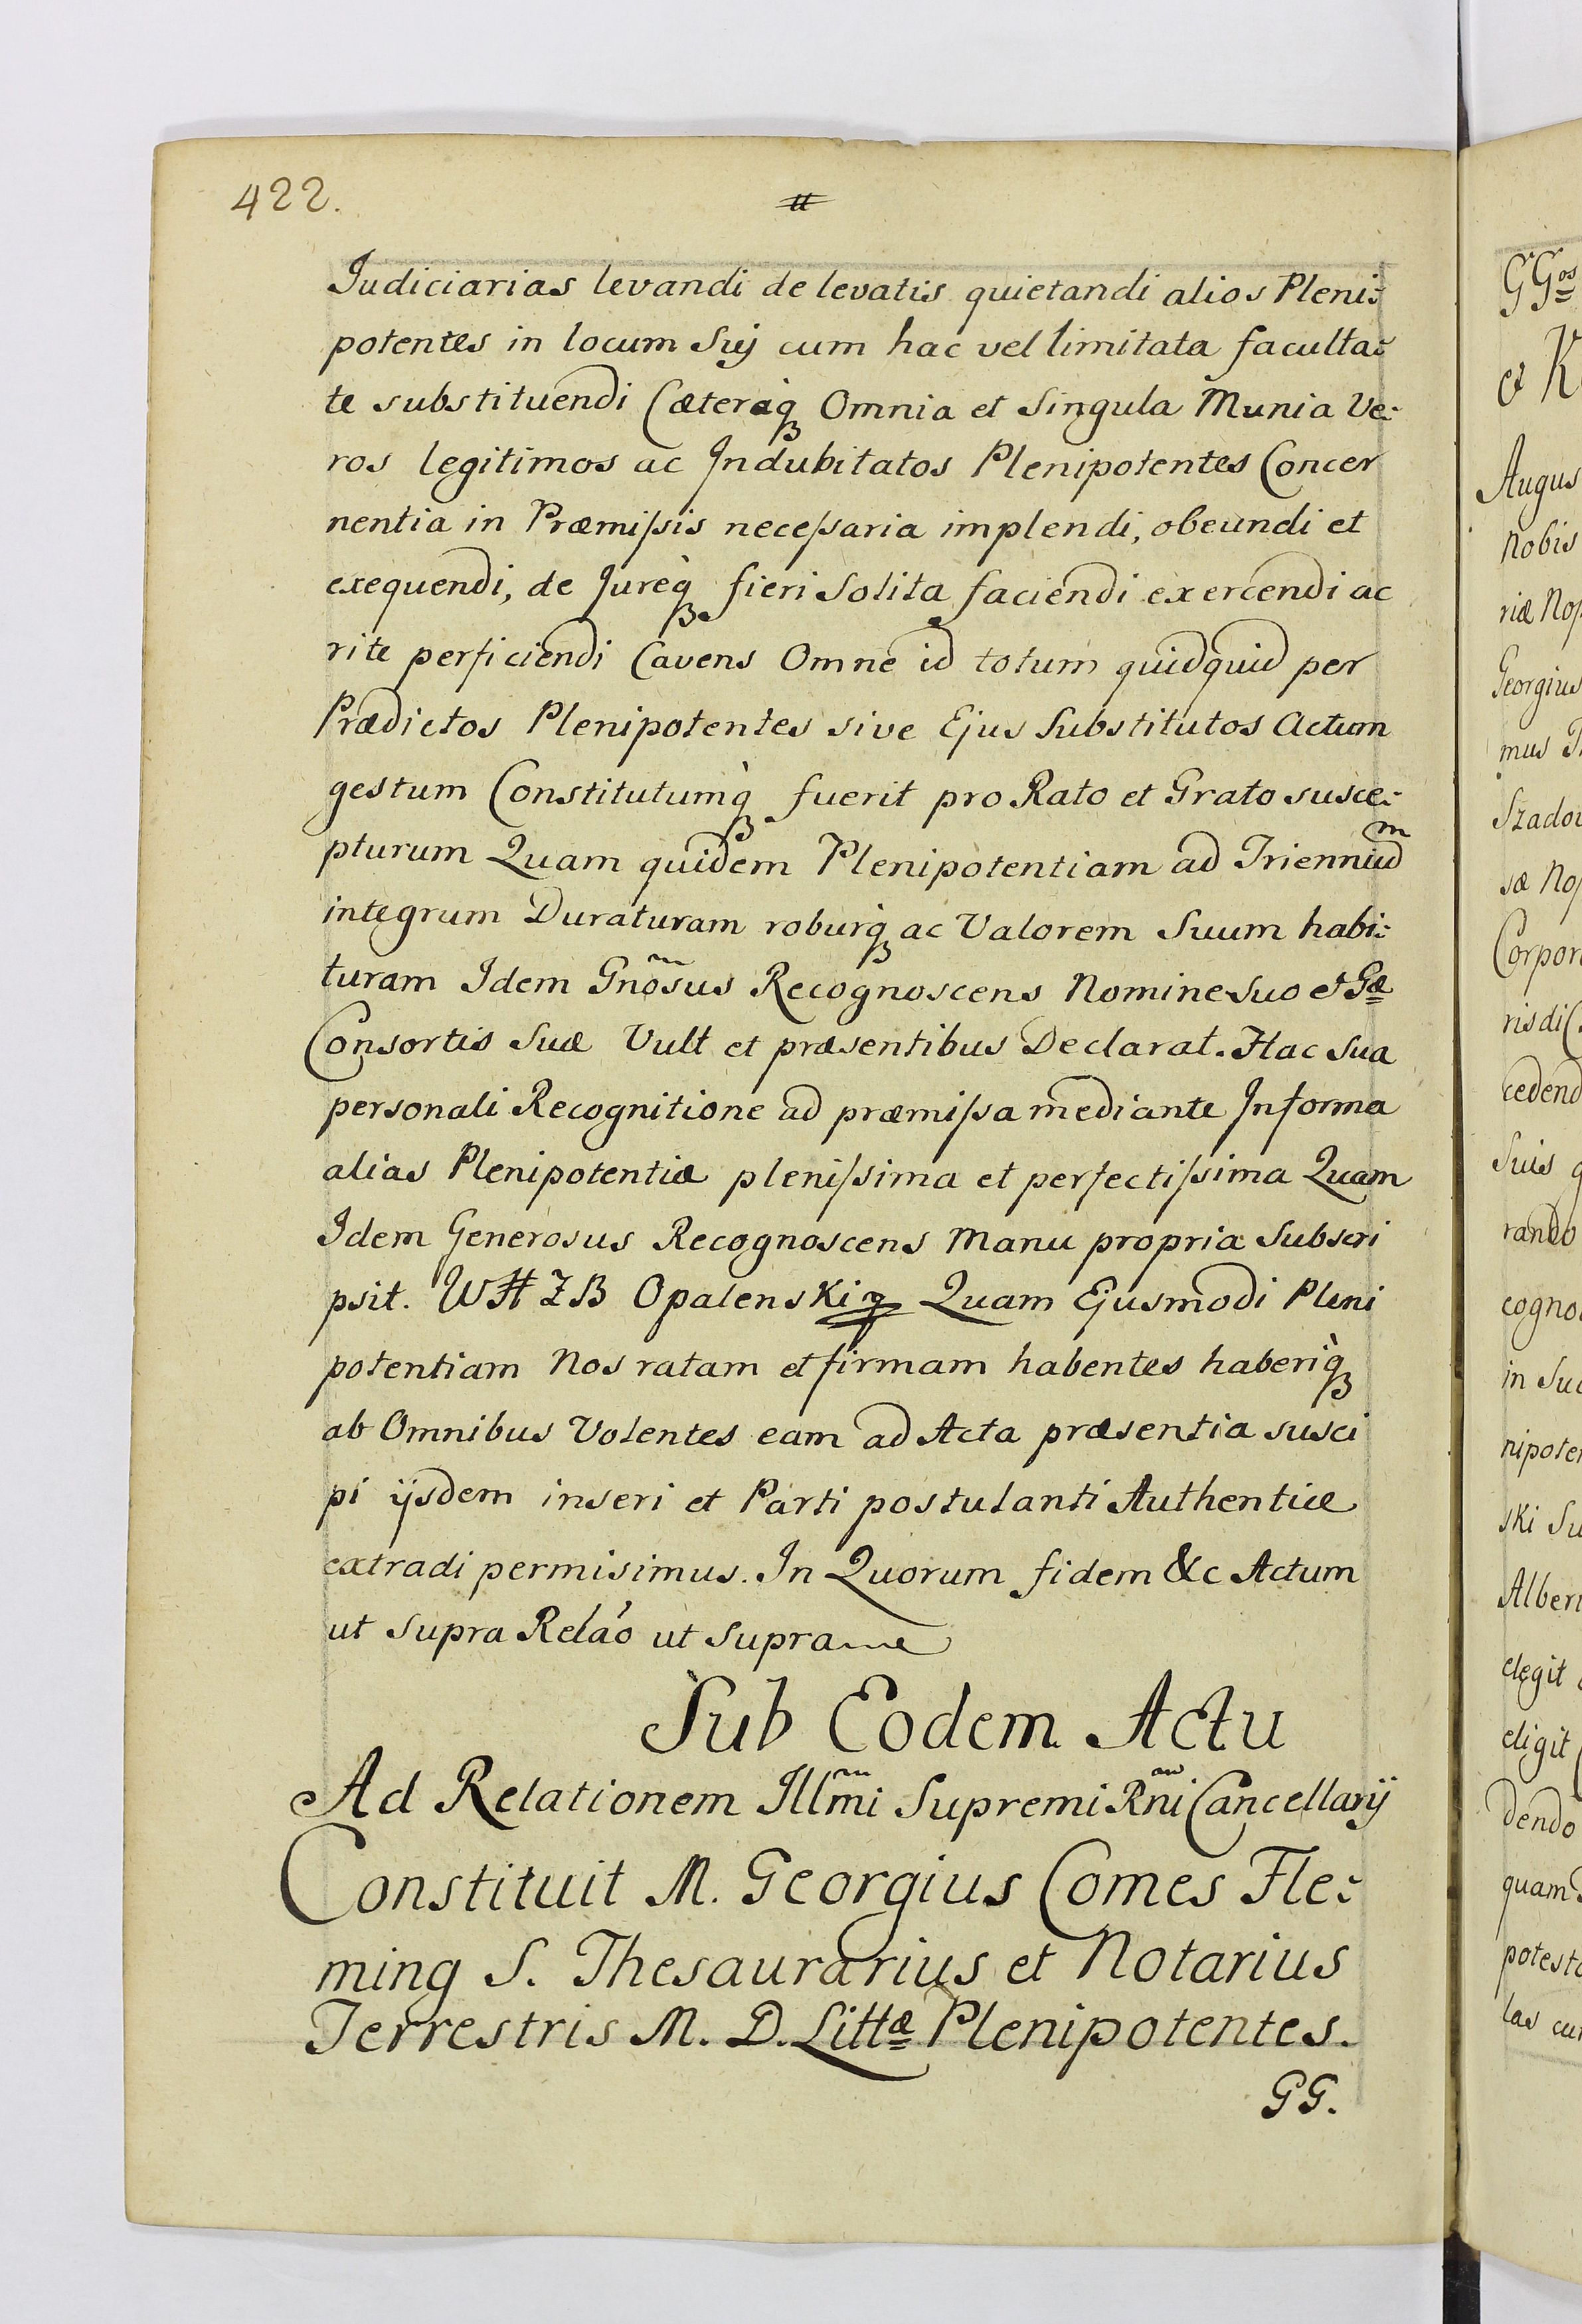 422.
Judiciarias levandi de levatis quietandi alios Pleni:
potentes in locum Sui cum hac vel limitata faculta:
te substituendi Cæteraq́ꝫ Omnia et Singula Munia Ve:
ros legitimos ac Indubitatos Plenipotentes Concer
nentia in Præmiſsis neceſsaria implendi, obeundi et
exequendi, de Jureq́ꝫ fieri Solita faciendi exercendi ac
rite perficiendi Cavens Omne id totum quidquid per
Prædictos Plenipotentes sive Ejus Substitutos Actum
gestum Constitutumq̀ꝫ fuerit pro Rato et Grato susce:
pturum Quam quidem Plenipotentiam ad Trienniũ
integrum Duraturam roburq́ꝫ ac Valorem Suum habi:
turam Idem Gnõsus Recognoscens Nomine Suo et Gæ
Consortis Suæ Vult et præsentibus Declarat. Hac Sua
personali Recognitione ad præmiſsa mediante Informa
alias Plenipotentiæ pleniſsima et perfectiſsima Quam
Idem Generosus Recognoscens Manu propria Subscri
psit. WH Z B Opalenski Quam Ejusmodi Pleni
potentiam Nos ratam et firmam habentes haberiq̀ꝫ
ab Omnibus Volentes eam ad Acta præsentia susci
pi ijsdem inseri et Parti postulanti Authentice
extradi permisimus. In Quorum fidem &c Actum
ut supra Relão ut supra
Sub Eodem Actu
Ad Relationem Illm̃i Supremi Rñi Cancellarij
Constituit M. Georgius Comes Fle:
ming S. Thesaurarius et Notarius
Terrestris M. D. Littæ Plenipotentes.
GG.
GGos
et K
Augus
Nobis
riæ No
Georgius
mus
Szado
sæ No
Corpor
risdi
cedend
Suis
rando
cogno
in Su
nipote
ski Su
Alber
elegit
eligit
dendo
quam
potest
las cu